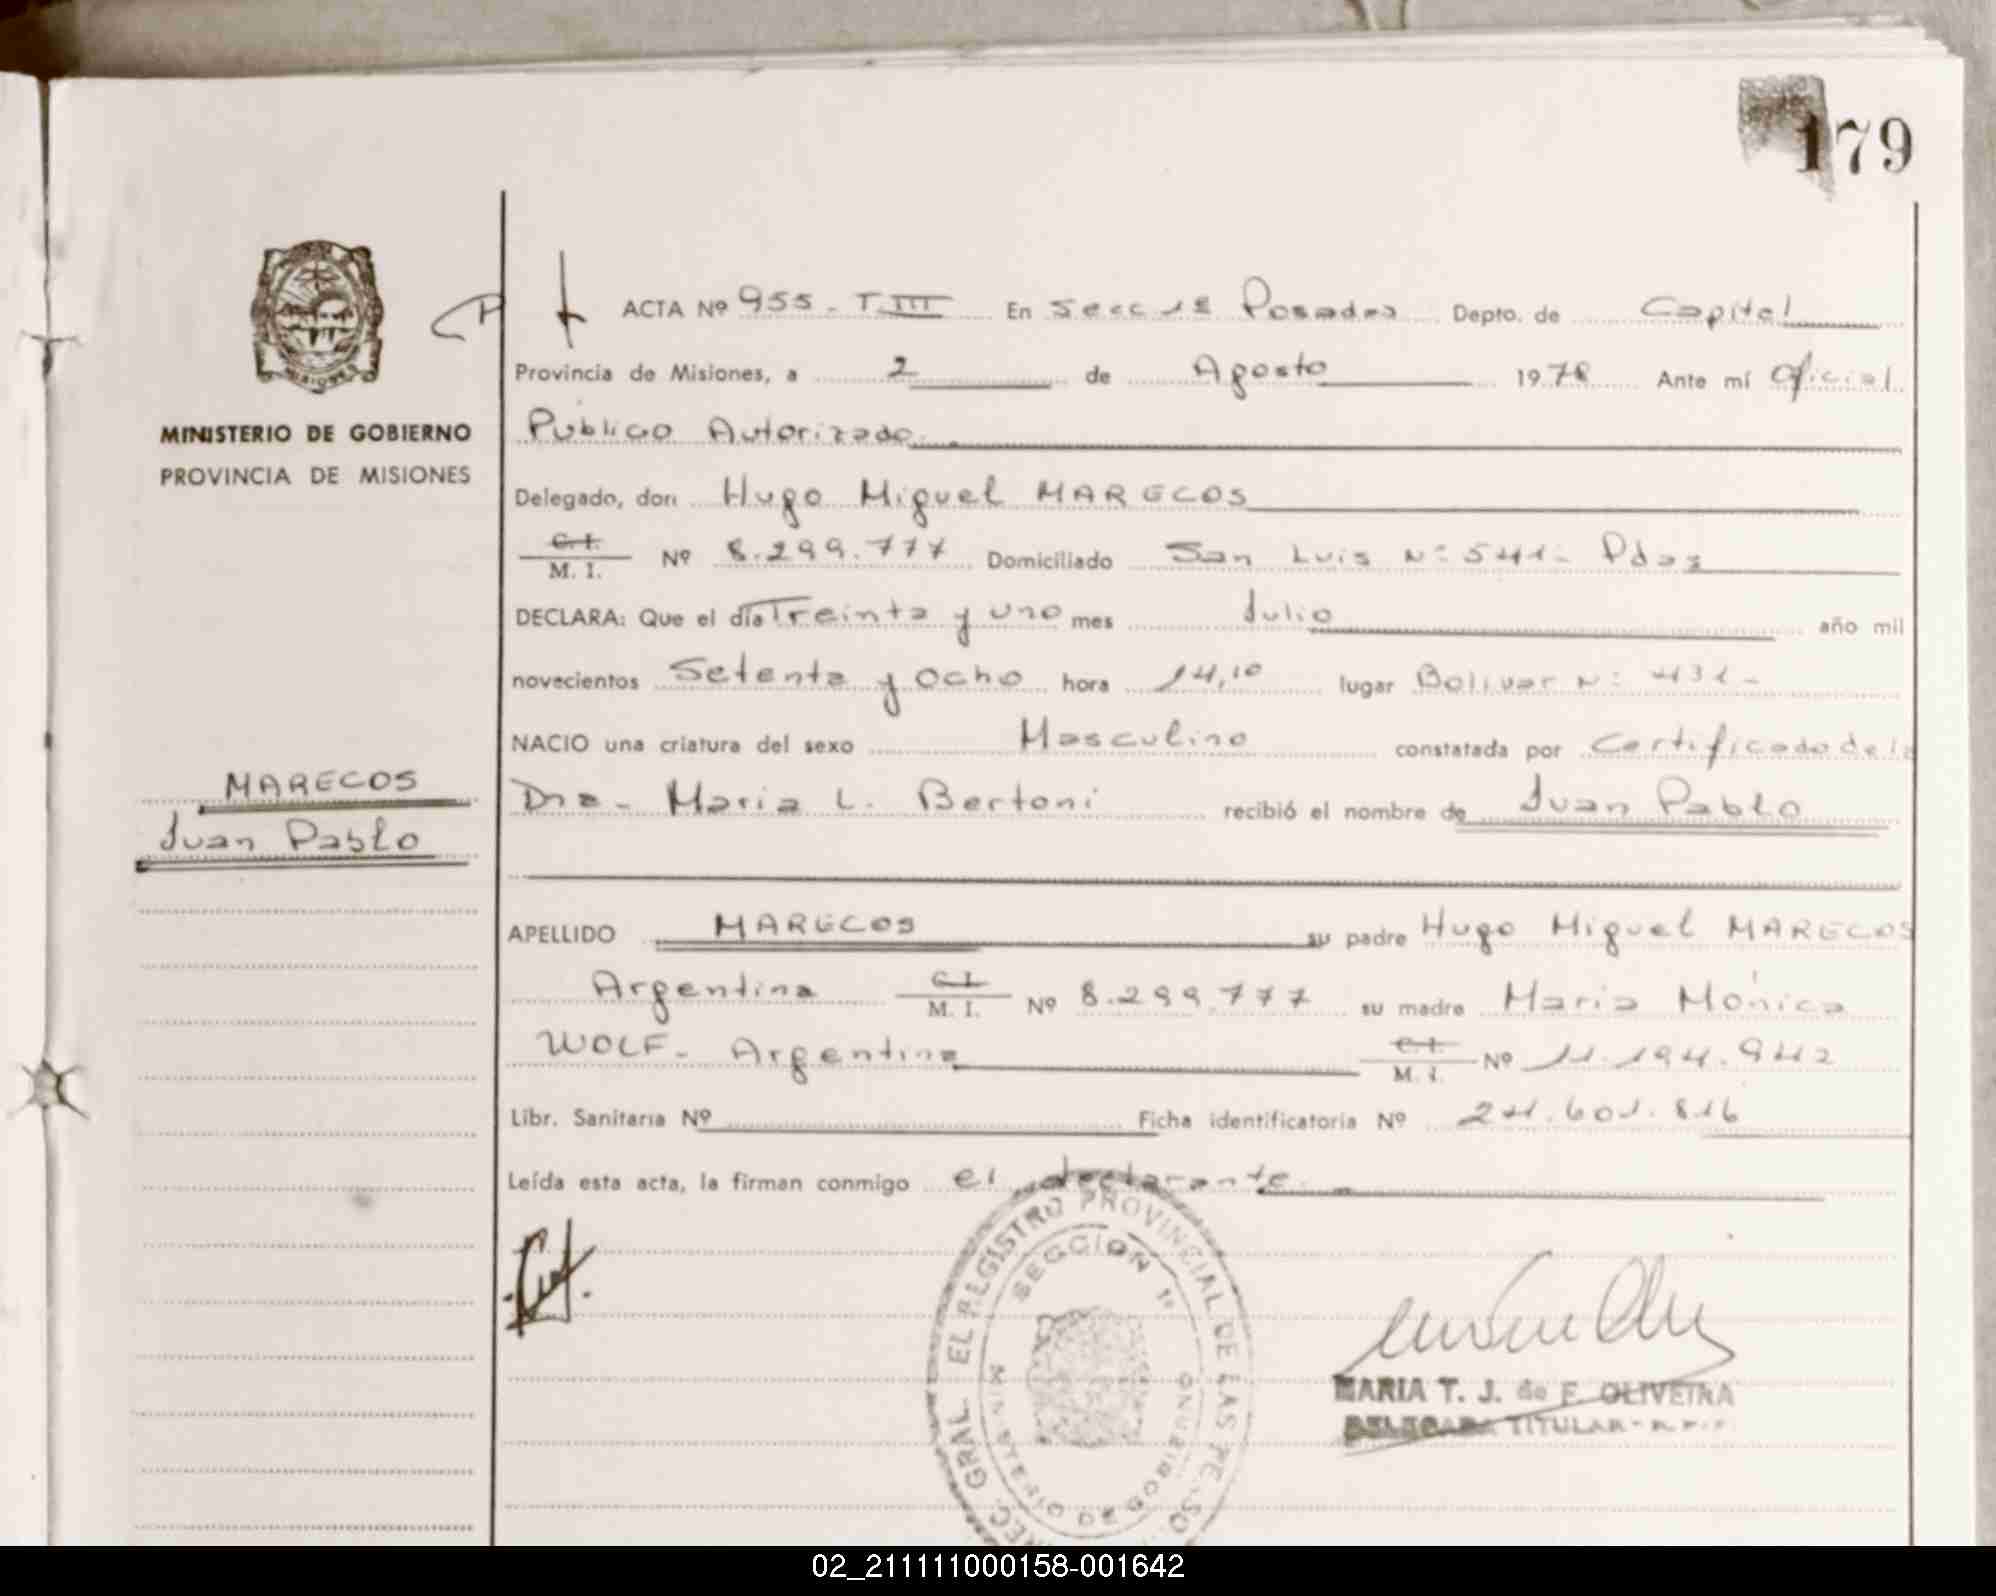 179
ACTA Nº 955 - T. III En Secc 1ª Posadas Depto. de Capital
Provincia de Misiones, a 2 de Agosto 1978 Ante mí Oficial
Público Autorizado.
MINISTERIO DE GOBIERNO
PROVINCIA DE MISIONES
Delegado, don Hugo Miguel MARECOS
C. I.
M. I. Nº 8.299.777 Domiciliado San Luis Nº 541 - Pdas
DECLARA: Que el día Treinta y uno mes Julio año mil
novecientos Setenta y Ocho hora 14,10 lugar Bolivar Nº 431 -
NACIO una criatura del sexo Masculino constatada por Certificado de la
MARECOS
Juan Pablo
Dra - Maria L. Bertoni recibió el nombre de Juan Pablo
APELLIDO MARECOS su padre Hugo Miguel MARECOS
Argentina C. I.
M. I. Nº 8.299.777 su madre Maria Mónica
WOLF - Argentina C. I.
M. I. Nº 11.194.942
Libr. Sanitaria Nº Ficha identificatoria Nº 24.601.816
Leída esta acta, la firman conmigo el declarante.
GRAL. EL REGISTRO PROVINCIAL DE LAS
SECCION 1ª
MARIA T. J. de F. OLIVEIRA
DELEGADA TITULAR -
MISIONES
02_211111000158-001642